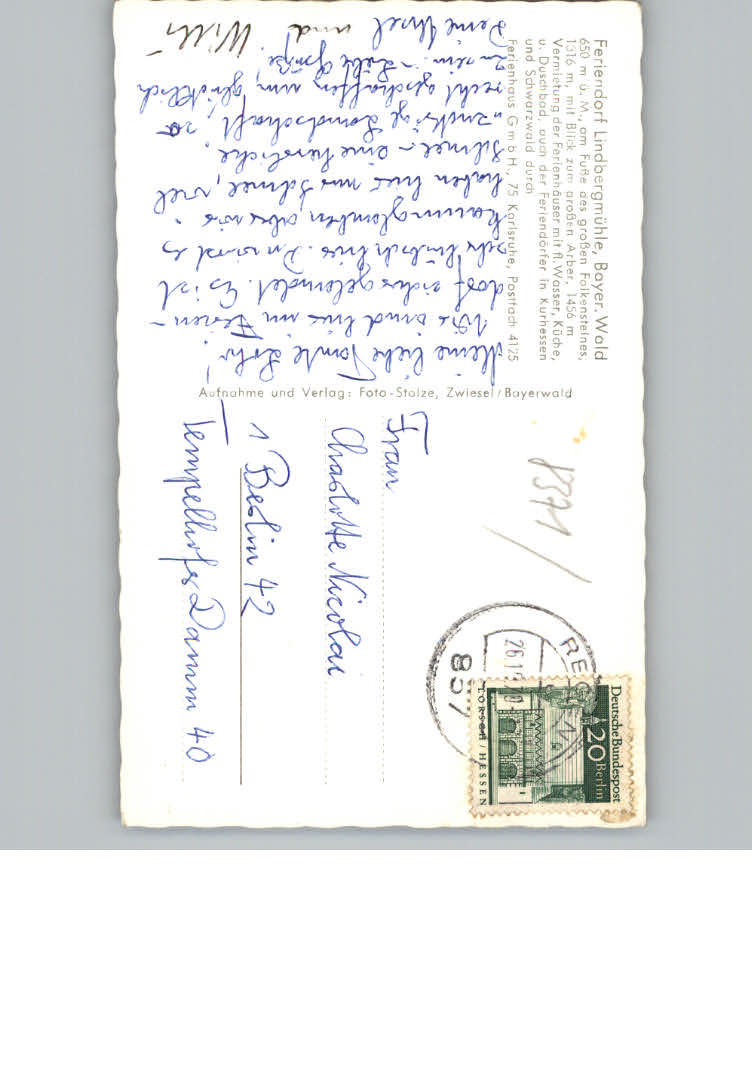 Feriendorf Lindbergmühle, Bayer. Wald
650 m ü. M., am Fuße des großen Falkensteines,
1316 m, mit Blick zum großen Arber, 1456 m
Vermietung der Ferienhäuser mit fl. Wasser, Küche,
u. Duschbad, auch der Feriendörfer in Kurhessen
und Schwarzwald durch
Ferienhaus GmbH., 75 Karlsruhe, Postfach 4125
Meine liebe Tante Lolo!
Wir sind hier im Ferien-
dorf sicher gelandet. Es ist
sehr hübsch hier. Du wirst es
kaum glauben aber wir
haben hier nur Schnee, viel
Schnee - eine herrliche,
Landschaft, so
recht geschaffen um glücklich
zu sein. Liebe Grüße,
Deine Ursel und Willi
Aufnahme und Verlag: Foto-Stolze, Zwiesel/Bayerwald
8371/
REGEN
837
Deutsche Bundespost
20 Berlin
LORSCH / HESSEN
Frau
Charlotte Nicolai
1 Berlin 42
Tempelhofer Damm 40